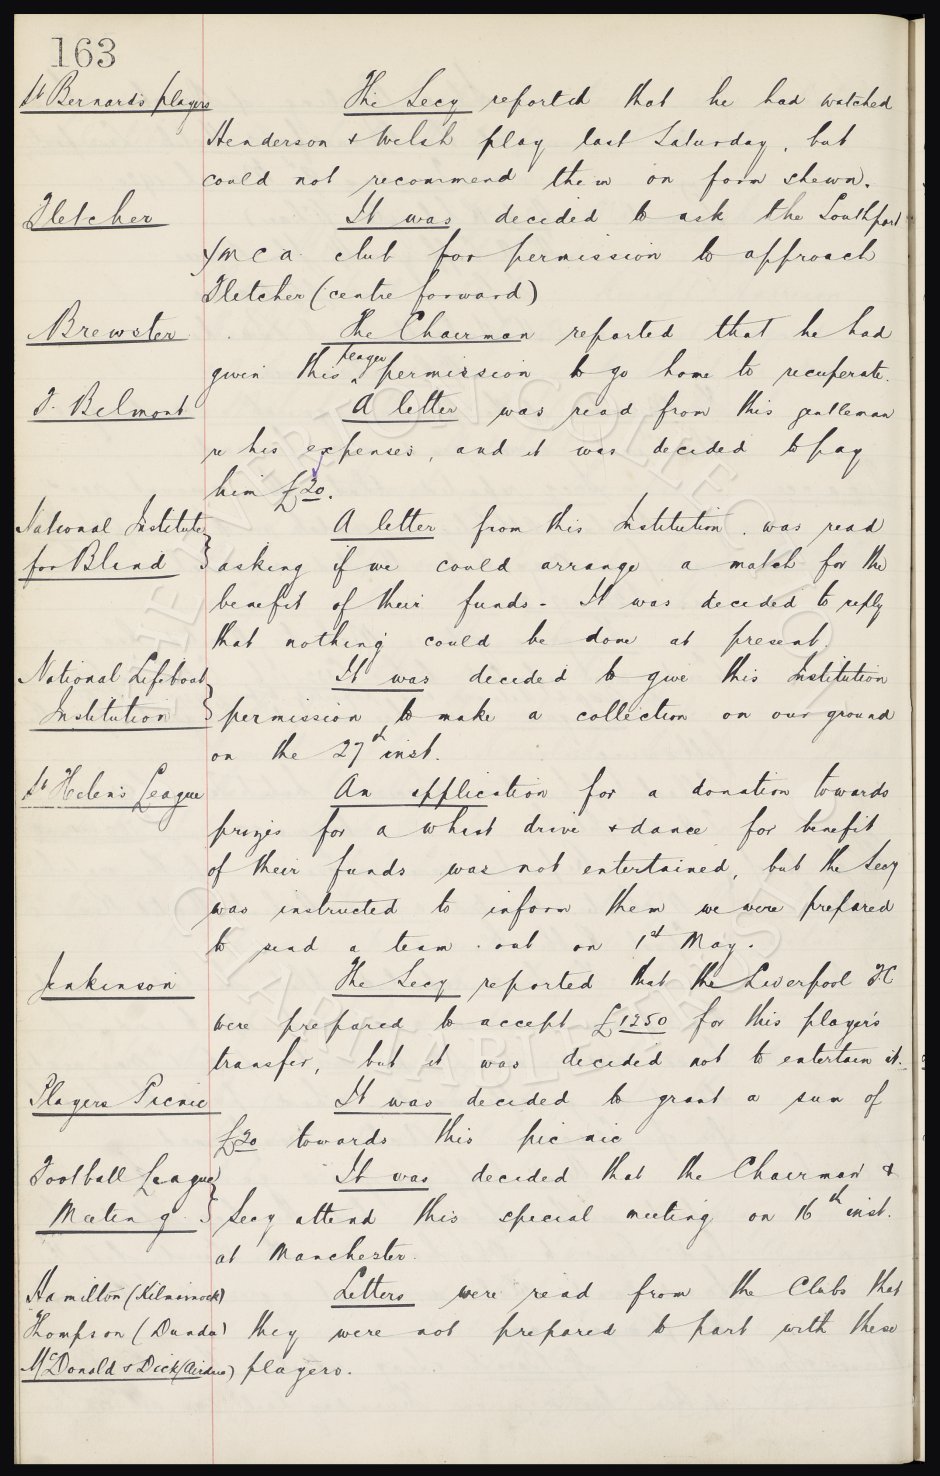 163
St Bernards players The Secy reported that he had watched
Henderson & Welsh play last Saturday, but
could not recommend them on form shewn.
Fletcher It was decided to ask the Southport
YMCA club for permission to approach
Fletcher (centre forward)
Brewster The Chairman reported that he had
given this player permission to go home to recuperate.
J. Belmont A letter was read from this gentleman
re his expenses, and it was decided to pay
him £20.
National Institute A letter from this Institution was read
for Blind asking if we could arrange a match for the
benefit of their funds - It was decided to reply
that nothing could be done at present.
National Lifeboat It was decided to give this Institution
Institution permission to make a collection on our ground
on the 27th inst.
St Helens League An application for a donation towards
prizes for a whist drive & dance for benefit
of their funds was not entertained, but the Secy
was instructed to inform them we were prepared
to send a team out on 1st May.
Jenkinson The Secy reported that the Liverpool FC
were prepared to accept £1250 for this player's
transfer, but it was decided not to entertain it.
Players Picnic It was decided to grant a sum of
£20 towards this picnic
Football League It was decided that the Chairman &
Meeting Secy attend this special meeting on 16th inst.
at Manchester.
Hamilton (Kilmarnock) Letters were read from the Clubs that
Thompson (Dundee) they were not prepared to part with these
McDonald & Dick (Airdrie) players.